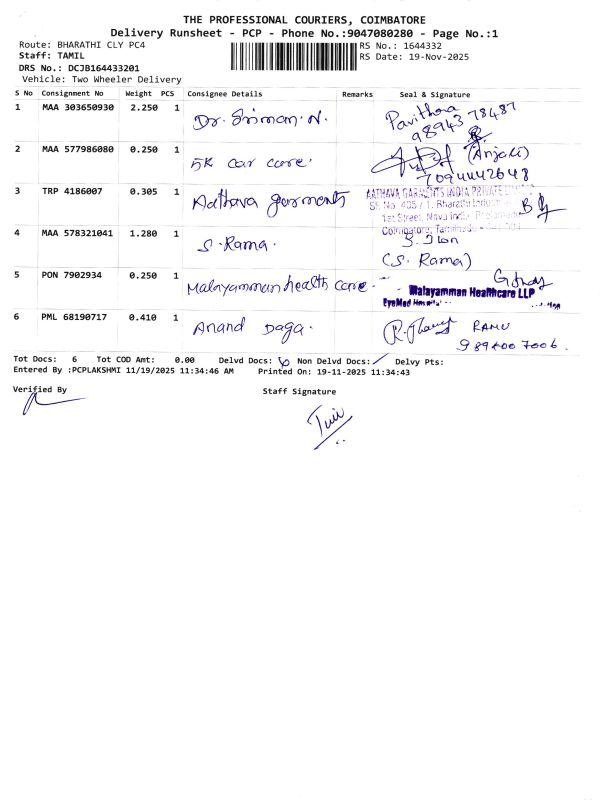 THE PROFESSIONAL COURIERS, COIMBATORE
Delivery Runsheet - PCP - Phone No.:9047080280 - Page No.:1
Route: BHARATHI CLY PC4 RS No.: 1644332
Staff: TAMIL RS Date: 19-Nov-2025
DRS No.: DCJB164433201
Vehicle: Two Wheeler Delivery
S No Consignment No Weight PCS Consignee Details Remarks Seal & Signature
1 MAA 303650930 2.250 1 Dr. Sriman. N. Pavithra
98943 78487
2 MAA 577986080 0.250 1 5K car care. (Anjali)
7094442648
3 TRP 4186007 0.305 1 Aathava garments AATHAVA GARMENTS INDIA PRIVATE
SF. No. 405 / 1, Bharathi
1st Street, Nava India
Coimbatore, Tamilnadu
4 MAA 578321041 1.280 1 S. Rama.
(S. Rama)
5 PON 7902934 0.250 1 Malayamman health care.
Malayamman Healthcare LLP
EyeMed
6 PML 68190717 0.410 1 Anand Daga. RAMU
9894007006.
Tot Docs: 6 Tot COD Amt: 0.00 Delvd Docs: 6 Non Delvd Docs: Delvy Pts:
Entered By :PCPLAKSHMI 11/19/2025 11:34:46 AM Printed On: 19-11-2025 11:34:43
Verified By Staff Signature